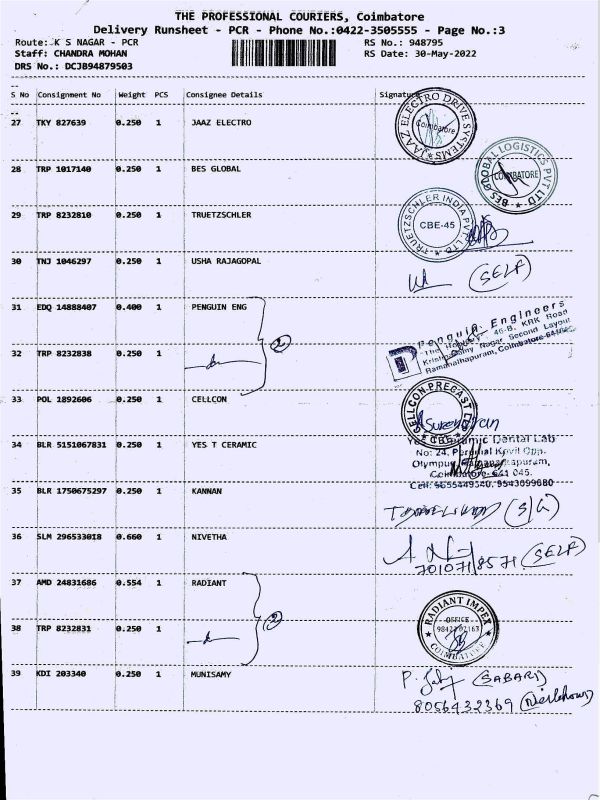 THE PROFESSIONAL COURIERS, Coimbatore
Delivery Runsheet - PCR - Phone No.:0422-3505555 - Page No.:3
Route: K S NAGAR - PCR RS No.: 948795
Staff: CHANDRA MOHAN RS Date: 30-May-2022
DRS No.: DCJB94879503
S No Consignment No Weight PCS Consignee Details Signature
27 TKY 827639 0.250 1 JAAZ ELECTRO
JAAZ ELECTRO DRIVE SYSTEMS
Coimbatore
28 TRP 1017140 0.250 1 BES GLOBAL
BES GLOBAL LOGISTICS PVT LTD
COIMBATORE
29 TRP 8232810 0.250 1 TRUETZSCHLER
TRUETZSCHLER INDIA PVT LTD
CBE-45
30 TNJ 1046297 0.250 1 USHA RAJAGOPAL
(SELF)
31 EDQ 14888407 0.400 1 PENGUIN ENG
2
Penguin Engineers
46-B, KRK Road
Nagar Second Layout
Ramanathapuram, Coimbatore
32 TRP 8232838 0.250 1
33 POL 1892606 0.250 1 CELLCON
CELLCON PRECAST
CBE
34 BLR 5151067831 0.250 1 YES T CERAMIC
Yes Ceramic Dental Lab
No: 24, Perumal Kovil Opp.
Olympus, Ramanathapuram,
Coimbatore- 641 045.
Cell: 9655449540, 9543099080
35 BLR 1750675297 0.250 1 KANNAN
36 SLM 296533018 0.660 1 NIVETHA
(SELF)
7010718571
37 AMD 24831686 0.554 1 RADIANT
2
RADIANT IMPEX
OFFICE
COIMBATORE
38 TRP 8232831 0.250 1
39 KDI 203340 0.250 1 MUNISAMY
(SABARI)
8056432369